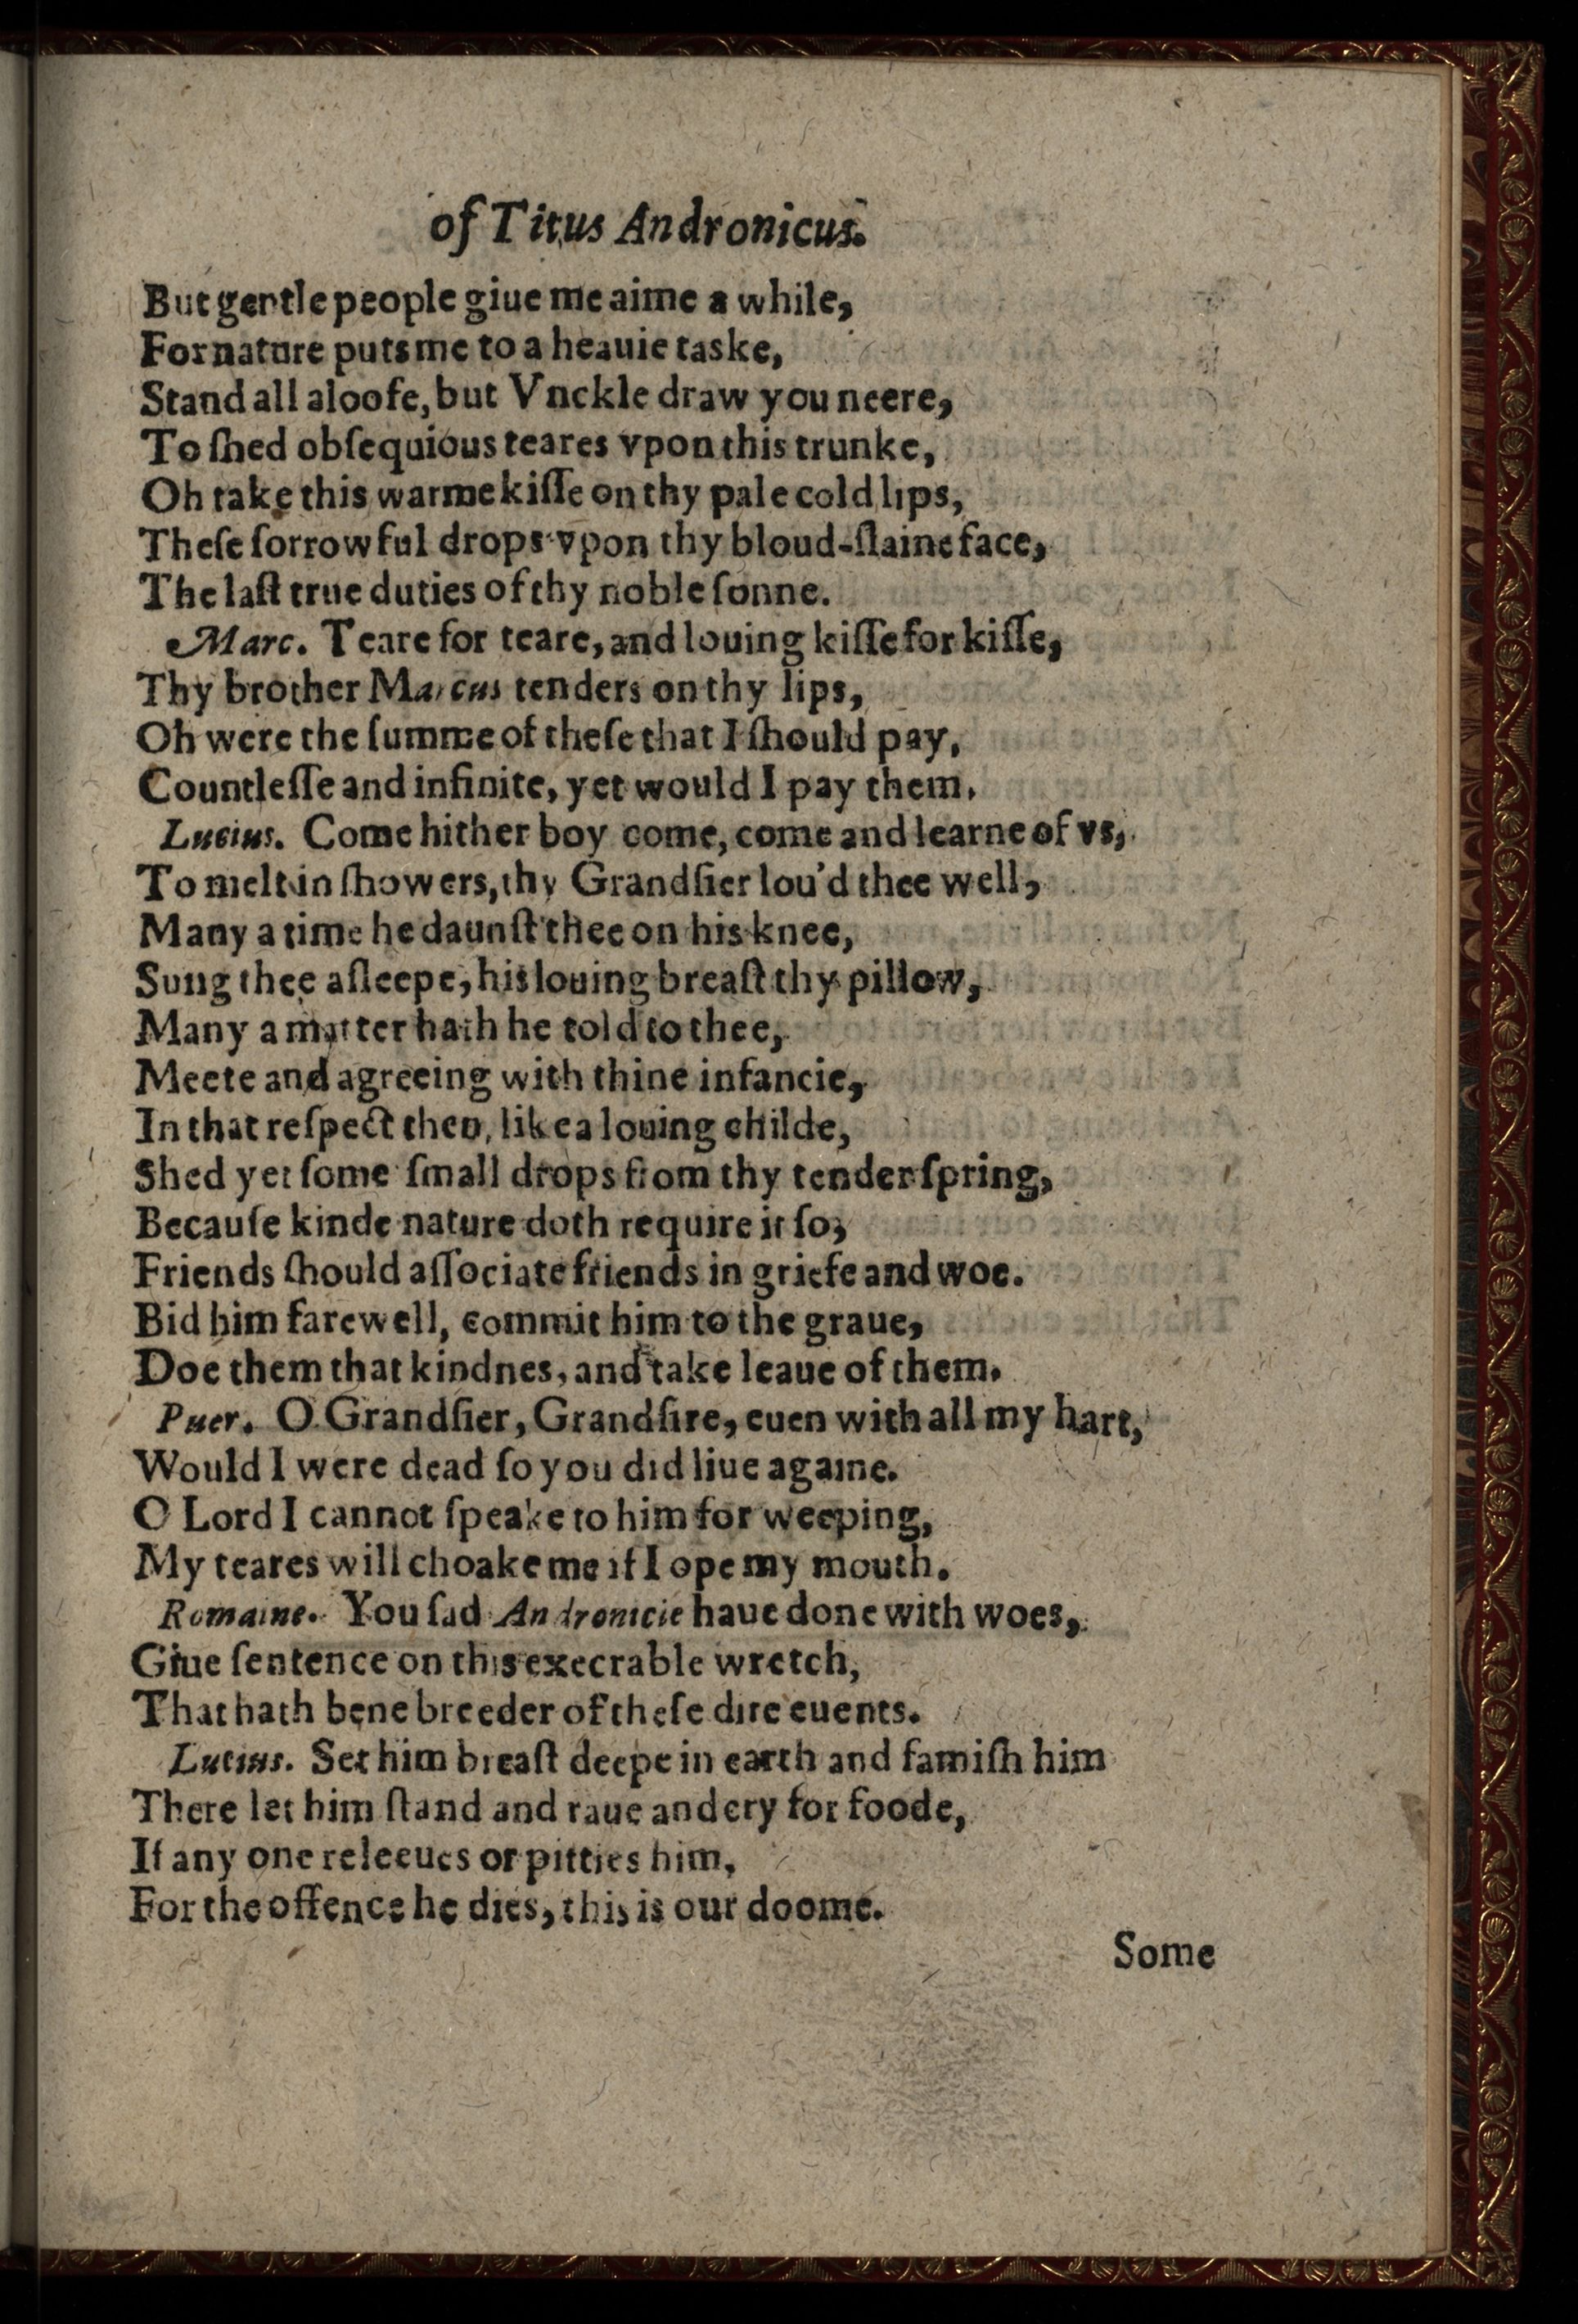 of Titus Andronicus.
But gentle people giue me aime a while,
For nature puts me to a heauie taske,
Stand all aloofe, but Vnckle draw you neere,
To ſhed obſequious teares vpon this trunke,
Oh take this warme kiſſe on thy pale cold lips,
Theſe ſorrowful drops vpon thy bloud-ſlaine face,
The laſt true duties of thy noble ſonne.
Marc. Teare for teare, and louing kiſſe for kiſſe,
Thy brother Marcus tenders on thy lips,
Oh were the ſumme of theſe that I ſhould pay,
Countleſſe and infinite, yet would I pay them.
Lucius. Come hither boy come, come and learne of vs,
To melt in ſhowers, thy Grandſier lou'd thee well,
Many a time he daunſt thee on his knee,
Sung thee aſleepe, his louing breaſt thy pillow,
Many a matter hath he told to thee,
Meete and agreeing with thine infancie,
In that reſpect then, like a louing childe,
Shed yet ſome ſmall drops from thy tender ſpring,
Becauſe kinde nature doth require it ſo,
Friends ſhould aſſociate friends in griefe and woe.
Bid him farewell, commit him to the graue,
Doe them that kindnes, and take leaue of them.
Puer. O Grandſier, Grandſire, euen with all my hart,
Would I were dead ſo you did liue againe.
O Lord I cannot ſpeake to him for weeping,
My teares will choake me if I ope my mouth.
Romaine. You ſad Andronicie haue done with woes,
Giue ſentence on this execrable wretch,
That hath bene breeder of theſe dire euents.
Lucius. Set him breaſt deepe in earth and famiſh him
There let him ſtand and raue and cry for foode,
If any one releeues or pitties him,
For the offence he dies, this is our doome.
Some